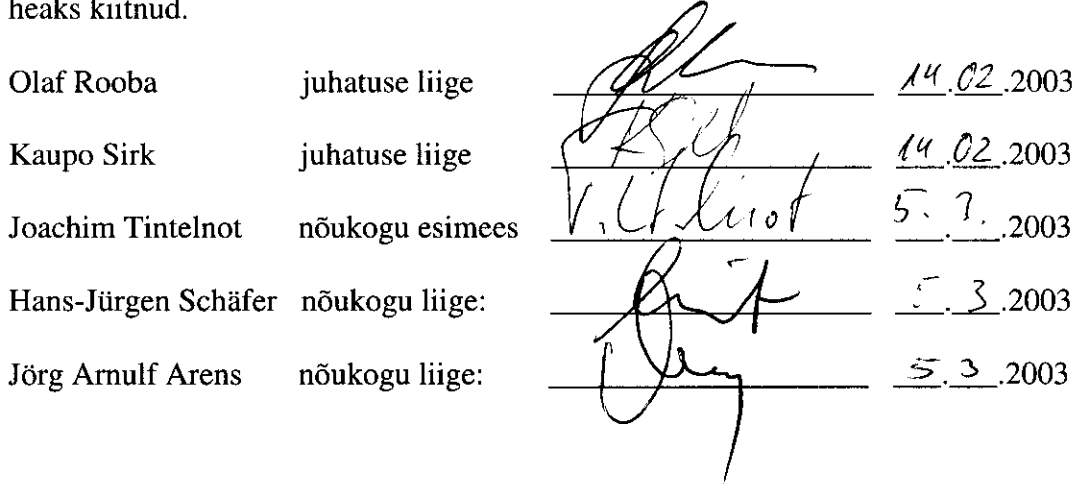 heaks kiitnud.
Olaf Rooba juhatuse liige 14.02.2003
Kaupo Sirk juhatuse liige 14.02.2003
Joachim Tintelnot nõukogu esimees 5. .2003
Hans-Jürgen Schäfer nõukogu liige: 3.2003
Jörg Arnulf Arens nõukogu liige: 5.3.2003